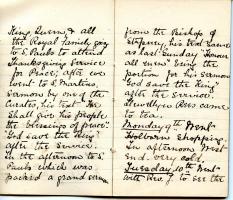 King, Queen, & all
the Royal family, going
to S. Pauls to attend
Thanksgiving Service
for Peace; after eve
went to S. Martins,
Sermon by one of the
Curates, his text "He
shall give his people
the blessings of peace".
"God save the King"
after the service.
In the afternoon to S.
Pauls which was
packed a grand sermon
from the Bishop of
Stepney, his text same
as last Sunday "Honour
all men" being the
portion for his sermon
God save the King
after the service.
Llewellyn Rees came
to tea.
Monday 9th Went
Holborn Shopping
In afternoon West
End. very cold.
Tuesday 10th Went
with Rev. 7 to see the